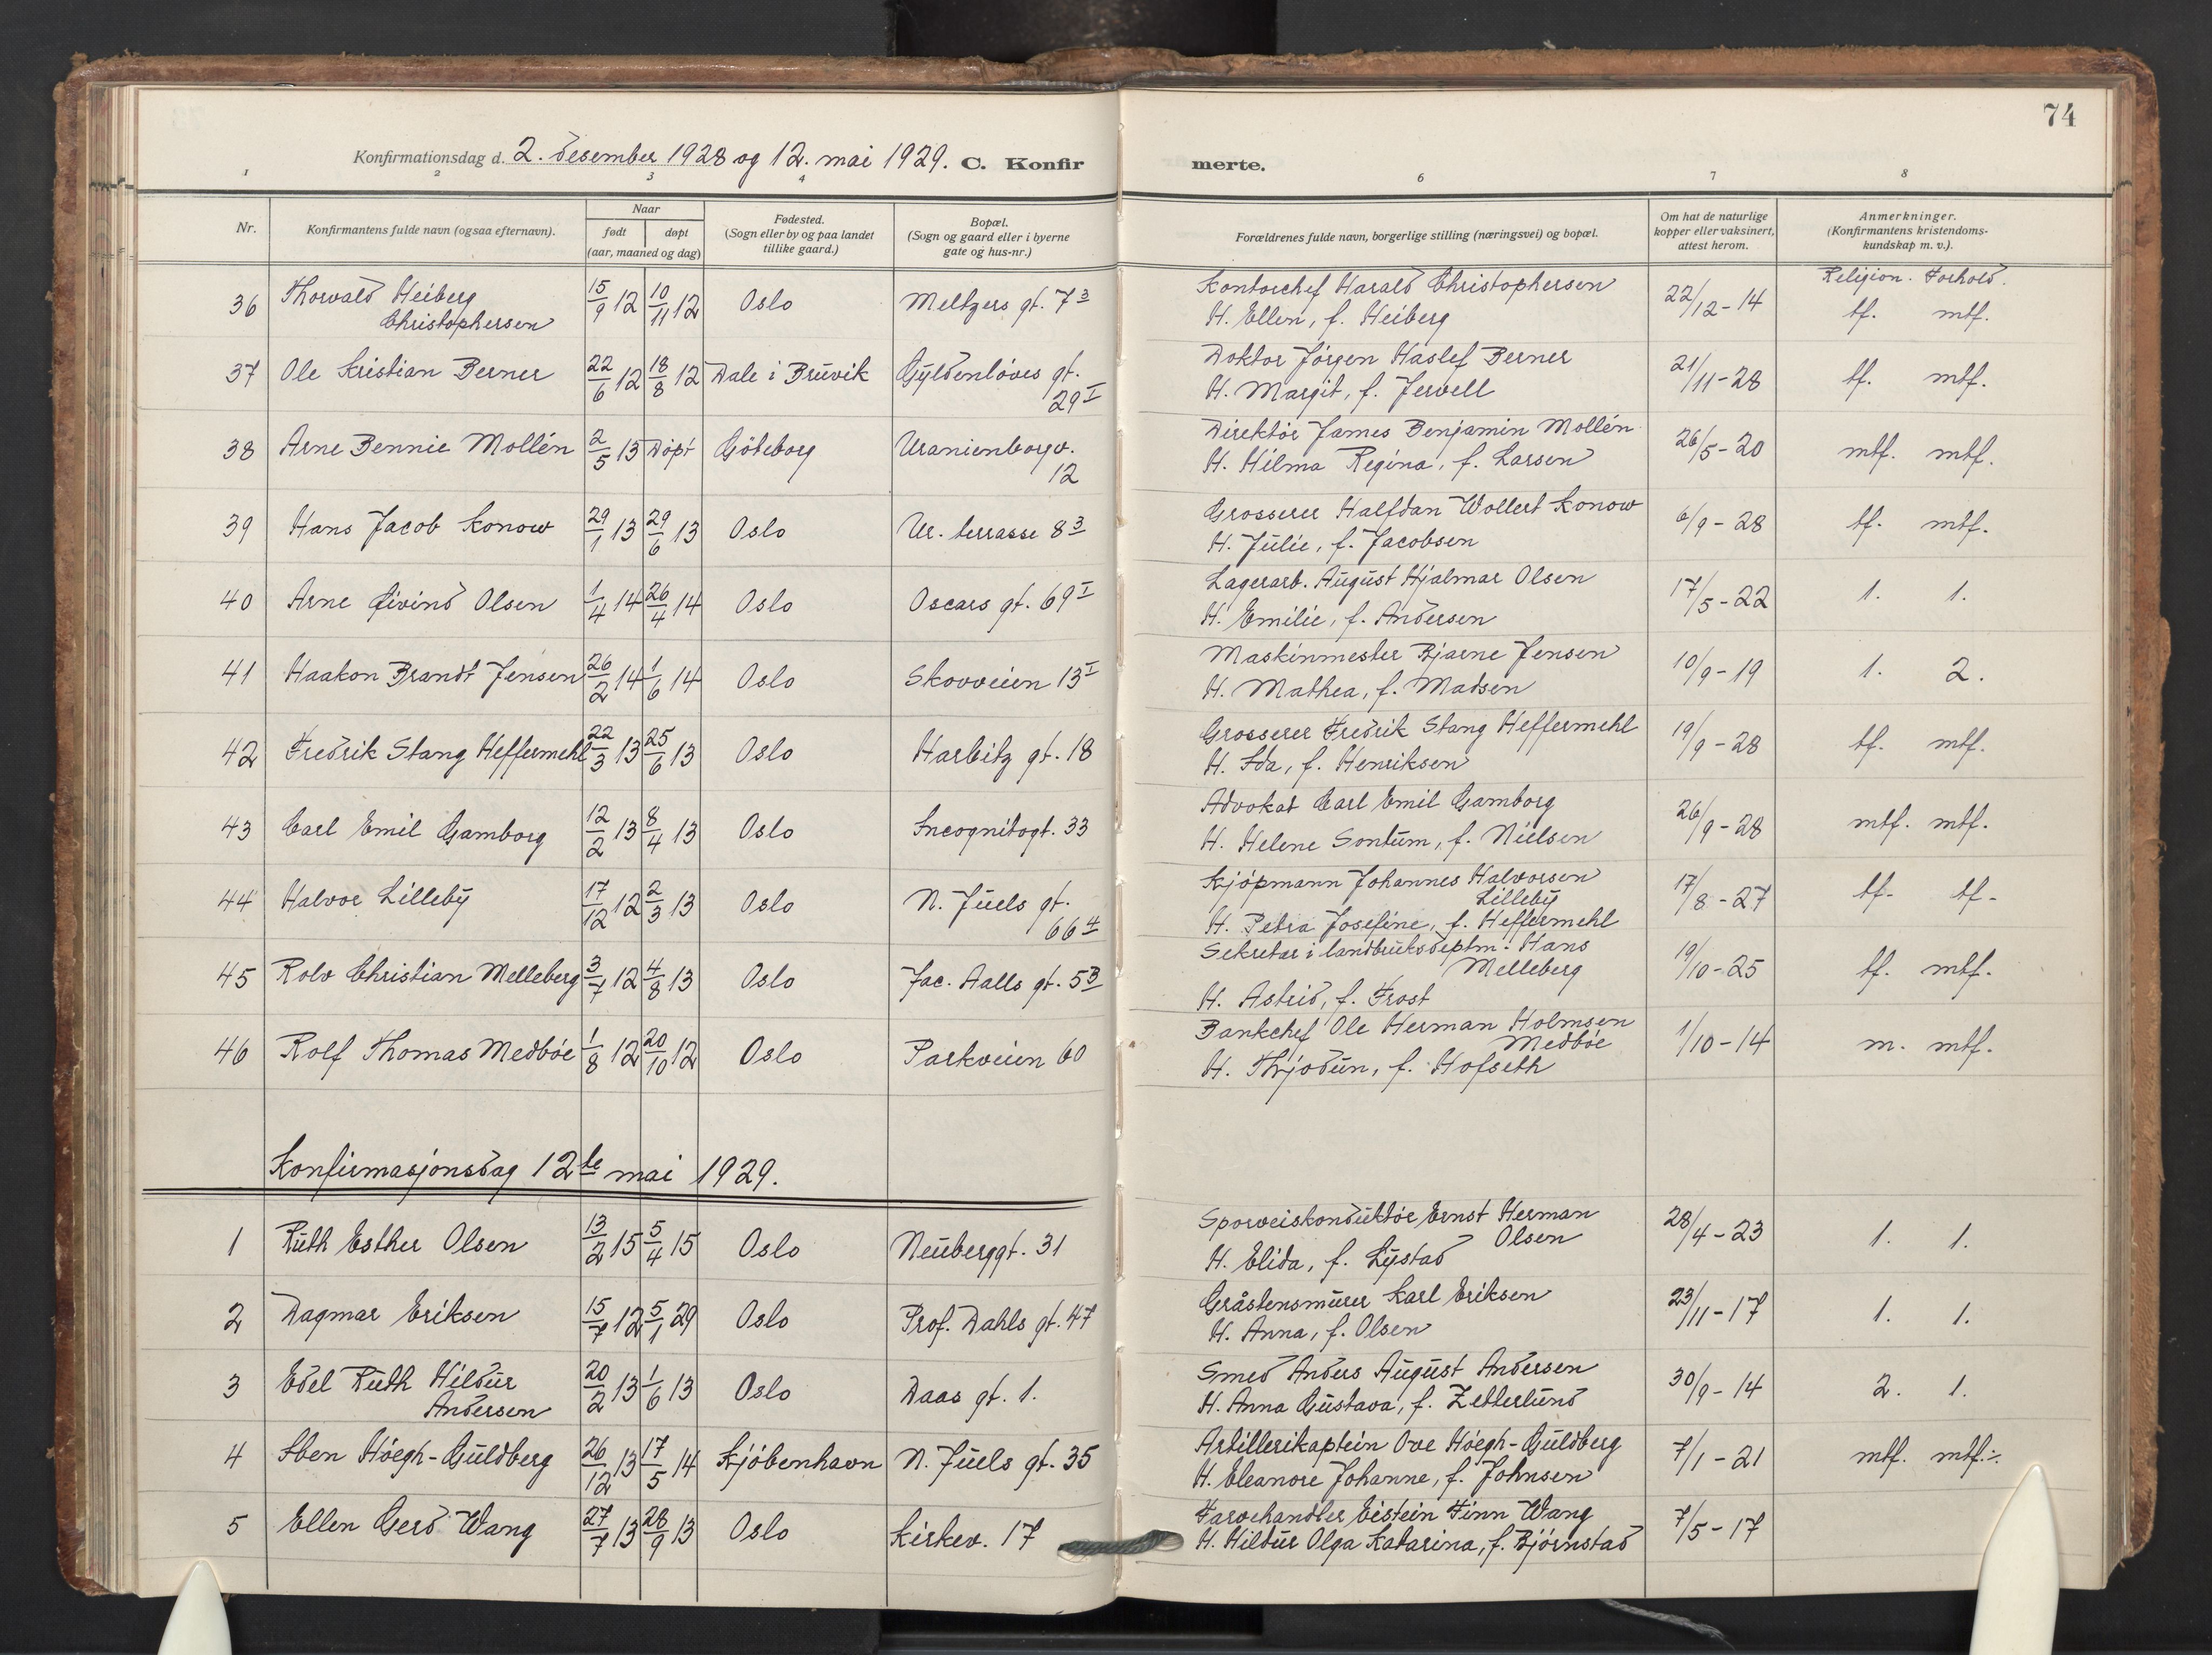 74
Konfirmationsdag d. 2. desember 1928 og 12. mai 1929. C. Konfir merte.
1 2 3 4 6 7 8
Nr. Konfirmantens fulde navn (ogsaa efternavn). Naar født døpt (aar, maaned og dag) Fødested. (Sogn eller by og paa landet tillike gaard.) Bopæl. (Sogn og gaard eller i byerne gate og hus-nr.) Forældrenes fulde navn, borgerlige stilling (næringsvei) og bopæl. Om hat de naturlige kopper eller vaksinert, attest herom. Anmerkninger. (Konfirmantens kristendoms-kundskap m. v.).
Religion. Forhold.
36 Thorvald Heiberg Christophersen 15/9 12 10/11 12 Oslo Meltzers gt. 7 3 Kontorchef Harald Christophersen
H. Ellen, f. Heiberg 22/12-14 tf. mtf.
37 Ole Kristian Berner 22/6 12 18/8 12 Dale i Bruvik Gyldenløves gt. 29 I Doktor Jørgen Haslef Berner
H. Margit, f. Jervell 21/11-28 tf. mtf.
38 Arne Bennie Mollén 2/5 13 Døpt Göteborg Uranienborgv. 12 Direktør James Benjamin Mollén
H. Hilma Regina, f. Larsen 26/5-20 mtf. mtf.
39 Hans Jacob Konow 29/1 13 29/6 13 Oslo Ur. terrasse 8 3 Grosserer Halfdan Wollert Konow
H. Julie, f. Jacobsen 6/9-28 tf. mtf.
40 Arne Øivind Olsen 1/4 14 26/4 14 Oslo Oscars gt. 69 I Lagerarb. August Hjalmar Olsen
H. Emilie, f. Andersen 17/5-22 1. 1.
41 Haakon Brandt Jensen 26/2 14 1/6 14 Oslo Skovveien 13 I Maskinmester Bjarne Jensen
H. Mathea, f. Madsen 10/9-19 1. 2.
42 Fredrik Stang Heffermehl 22/3 13 25/6 13 Oslo Harbitz gt. 18 Grosserer Fredrik Stang Heffermehl
H. Ida, f. Henriksen 19/9-28 tf. mtf.
43 Carl Emil Gamborg 12/2 13 8/4 13 Oslo Incognitogt. 33 Advokat Carl Emil Gamborg
H. Helene Sontum, f. Nielsen 26/9-28 mtf. mtf.
44 Halvor Lilleby 17/12 12 2/3 13 Oslo N. Juels gt. 66 4 Kjøpmann Johannes Halvorsen Lilleby
H. Petra Josefine, f. Heffermehl 17/8-27 tf. tf.
45 Rolv Christian Melleberg 3/7 12 4/8 13 Oslo Jac. Aalls gt. 53 Sekretær i landbruksdeptm. Hans Melleberg
H. Astrid, f. Frost 19/10-25 tf. mtf.
46 Rolf Thomas Medbøe 1/8 12 20/10 12 Oslo Parkveien 60 Bankchef Ole Herman Holmsen Medbøe
H. Thjodun, f. Hofseth 1/10-14 m. mtf.
Konfirmasjonsdag 12te mai 1929.
1 Ruth Esther Olsen 13/2 15 5/4 15 Oslo Neuberggt. 31 Sporveiskonduktør Ernst Herman Olsen
H. Elida, f. Lystad 28/4-23 1. 1.
2 Dagmar Eriksen 15/7 12 5/1 29 Oslo Prof. Dahls gt. 47 Gråstensmurer Karl Eriksen
H. Anna, f. Olsen 23/11-17 1. 1.
3 Edel Ruth Hildur Andersen 20/2 13 1/6 13 Oslo Daas gt. 1. Smed Anders August Andersen
H. Anna Gustava, f. Zetterlund 30/9-14 2. 1.
4 Iben Høegh-Guldberg 26/12 13 17/5 14 Kjøbenhavn N. Juels gt. 35 Artillerikaptein Ove Høegh-Guldberg
H. Eleanore Johanne, f. Johnsen 7/1-21 mtf. mtf.
5 Ellen Gerd Wang 27/7 13 28/9 13 Oslo Kirkev. 17 Farvehandler Eistein Finn Wang
H. Hildur Olga Katarina, f. Bjørnstad 7/5-17